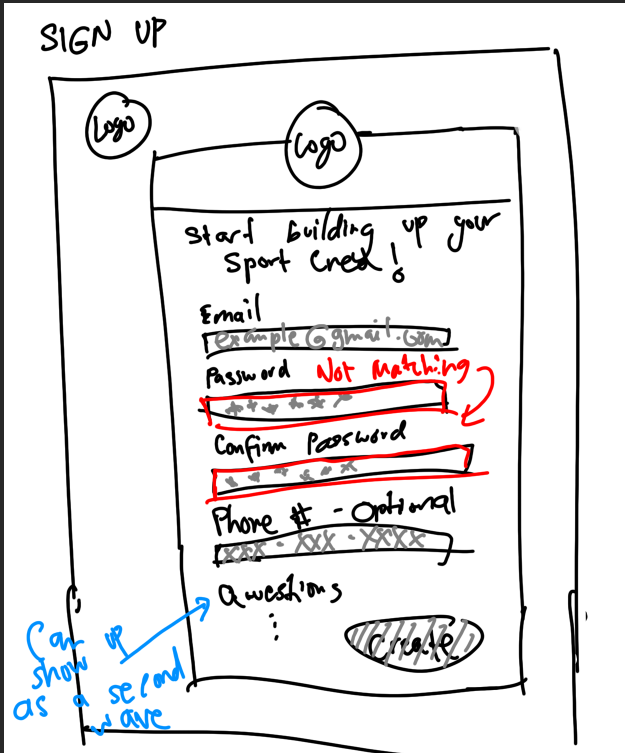 SIGN UP
Logo
Logo
Start building up your
Sport Cred!
Email
example@gmail.com
Password Not matching
******
Confirm Password
******
Phone # - Optional
XXX - XXX - XXXX
Questions
⋮
Create
Can show up
as a second
wave